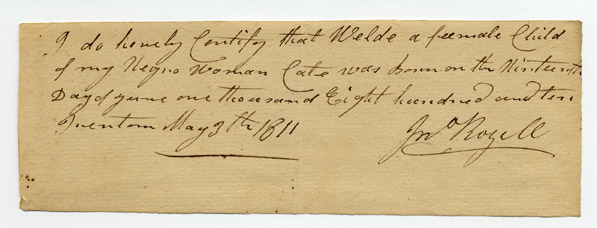 I do hereby Certify that Welde a feemale Child
of my Negro Woman Cate was born on the Ninteenth
Day of June one thousand Eight hundred and ten
Trentom May 9th 1811
Jno Rozell